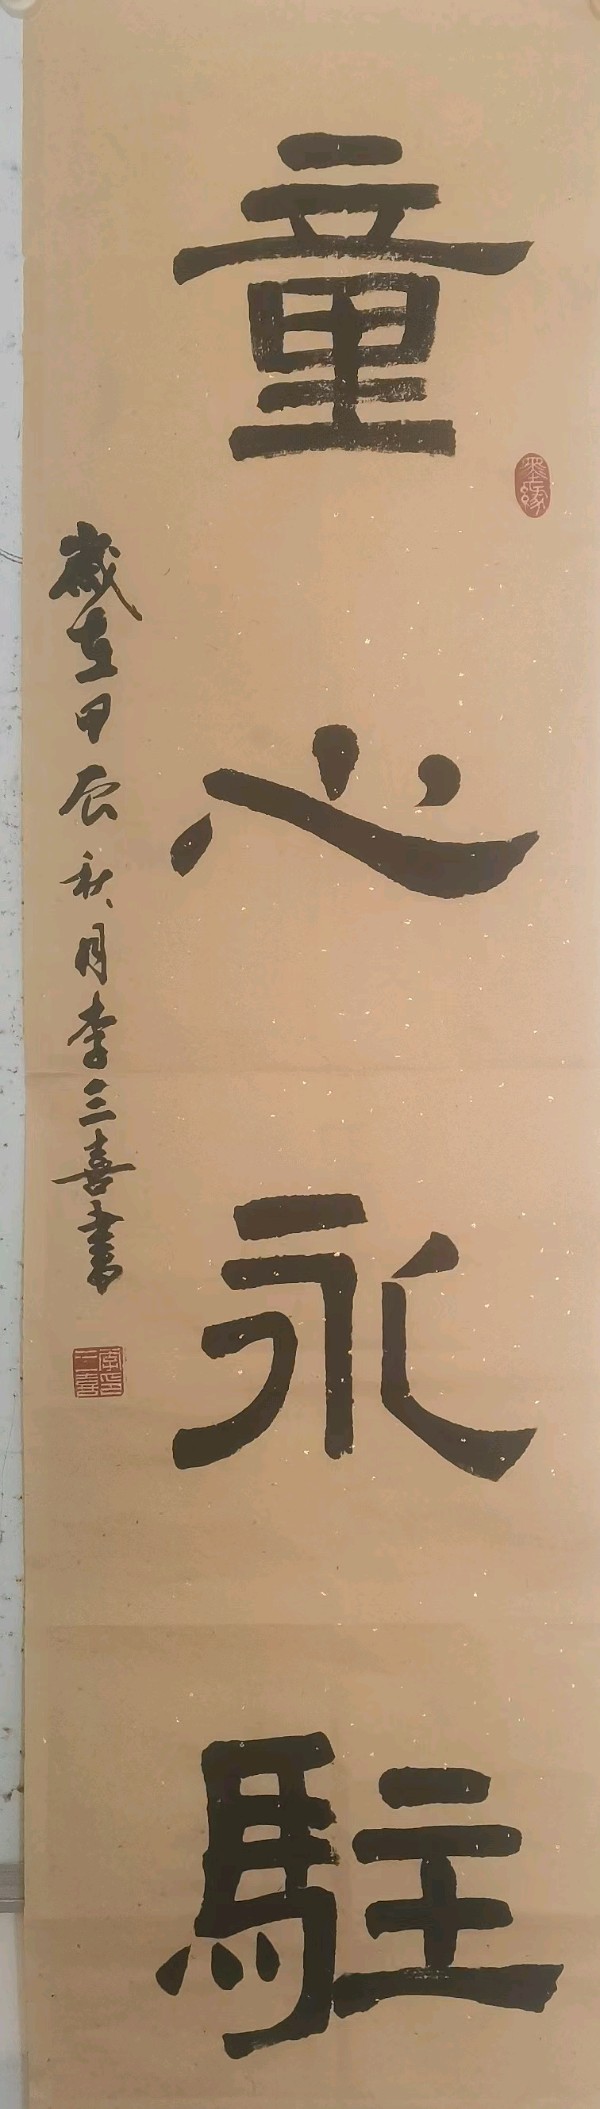 童心永駐
墨缘
歲在甲辰秋月李三喜書
李三喜印